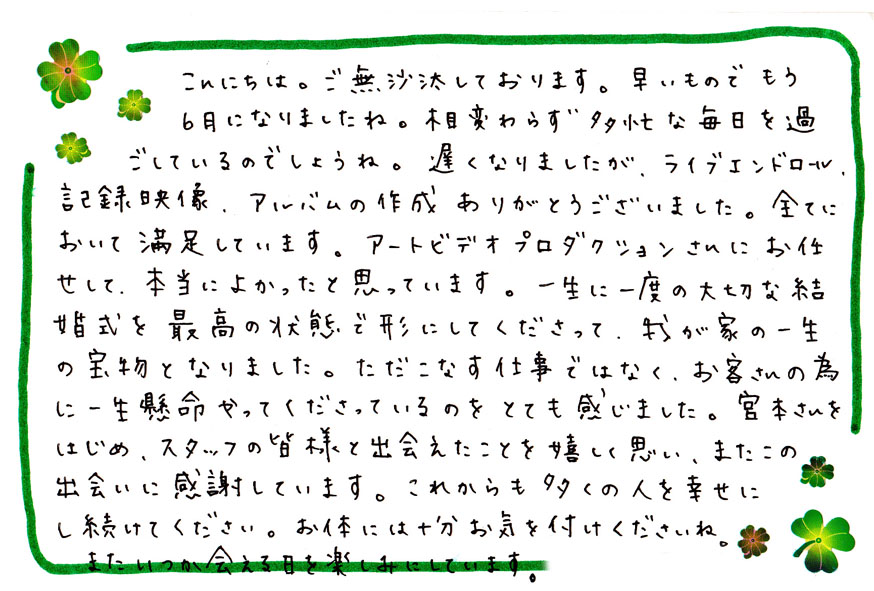 こんにちは。ご無沙汰しております。早いものでもう
6月になりましたね。相変わらず多忙な毎日を過
ごしているのでしょうね。遅くなりましたが、ライブエンドロール、
記録映像、アルバムの作成ありがとうございました。全てに
おいて満足しています。アートビデオプロダクションさんにお任
せして、本当によかったと思っています。一生に一度の大切な結
婚式を最高の状態で形にしてくださって、我が家の一生
の宝物となりました。ただこなす仕事ではなく、お客さんの為
に一生懸命やってくださっているのをとても感じました。宮本さんを
はじめ、スタッフの皆様と出会えたことを嬉しく思い、またこの
出会いに感謝しています。これからも多くの人を幸せに
し続けてください。お体には十分お気を付けくださいね。
またいつか会える日を楽しみにしています。